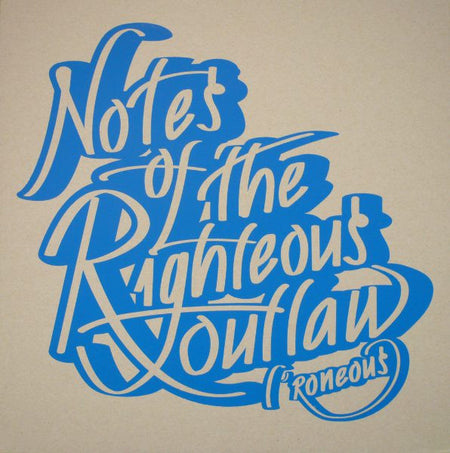 Notes
of the
Righteous
Outlaw
'Roneous